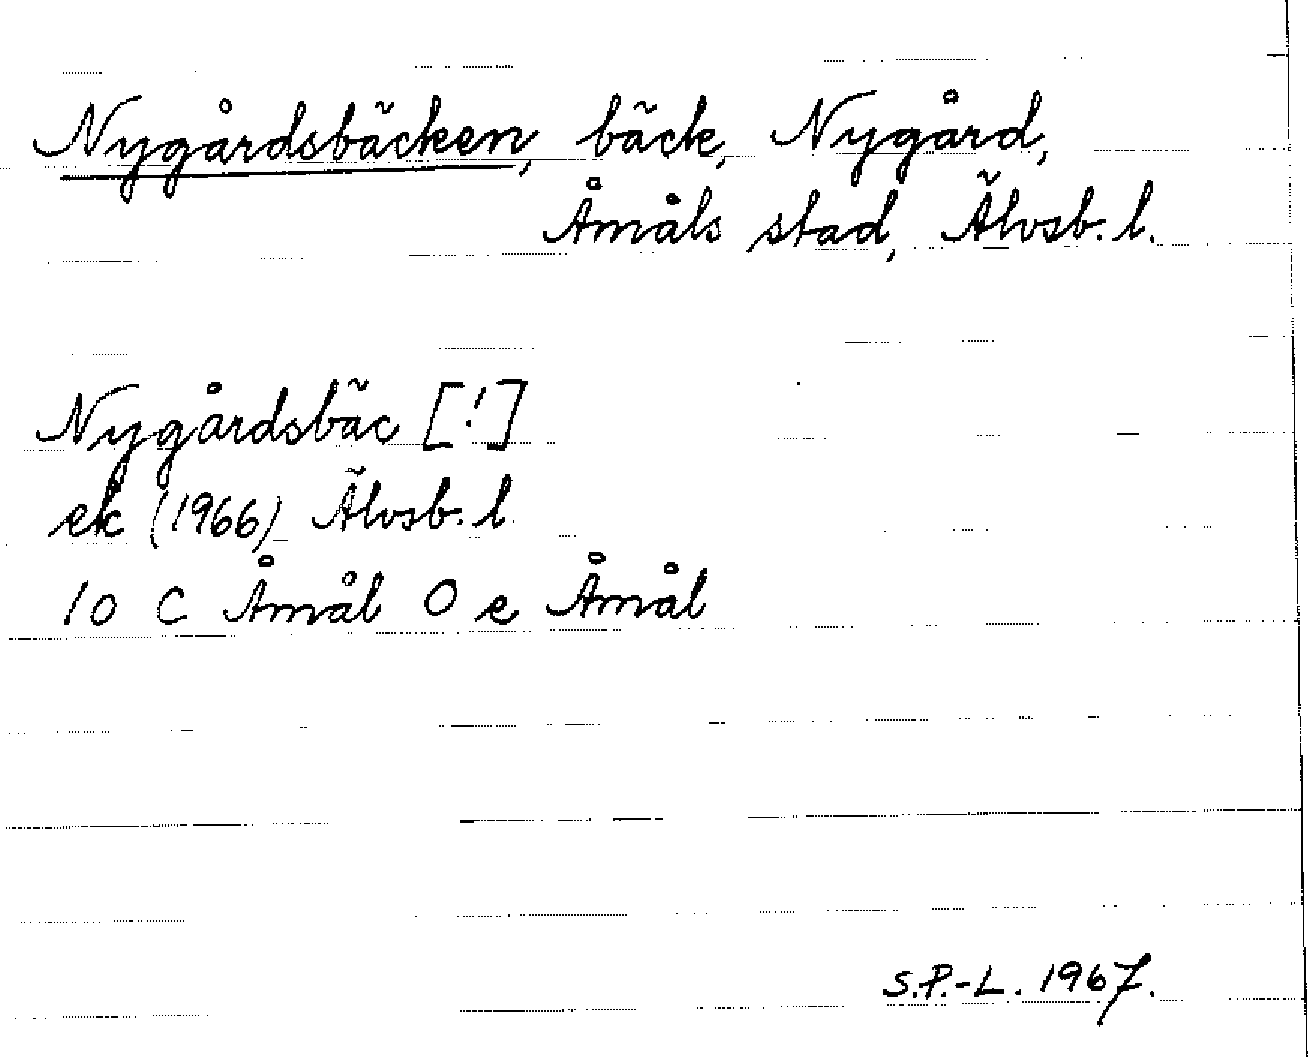 Nygårdsbäcken, bäck, Nygård,
Åmåls stad, Älvsb. l.
Nygårdsbäc [!]
ek (1966) Älvsb. l
10 C Åmål O e Åmål
S.P.-L. 1967.